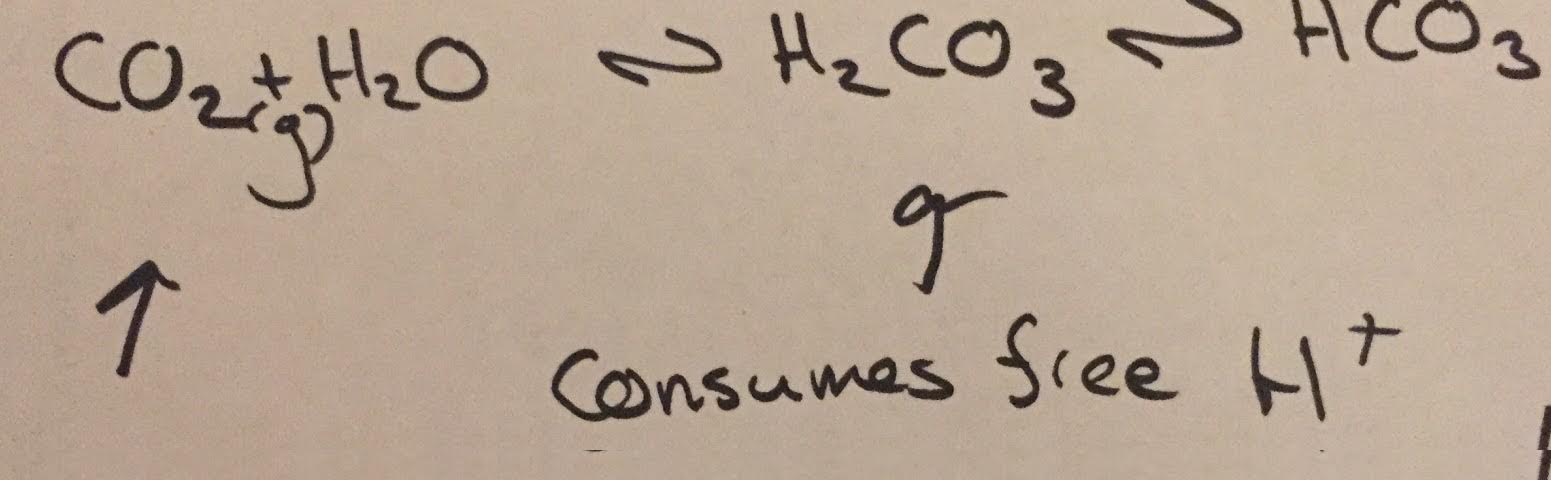 CO₂(g) + H₂O ⇌ H₂CO₃ ⇌ HCO₃
↑
Consumes free H⁺